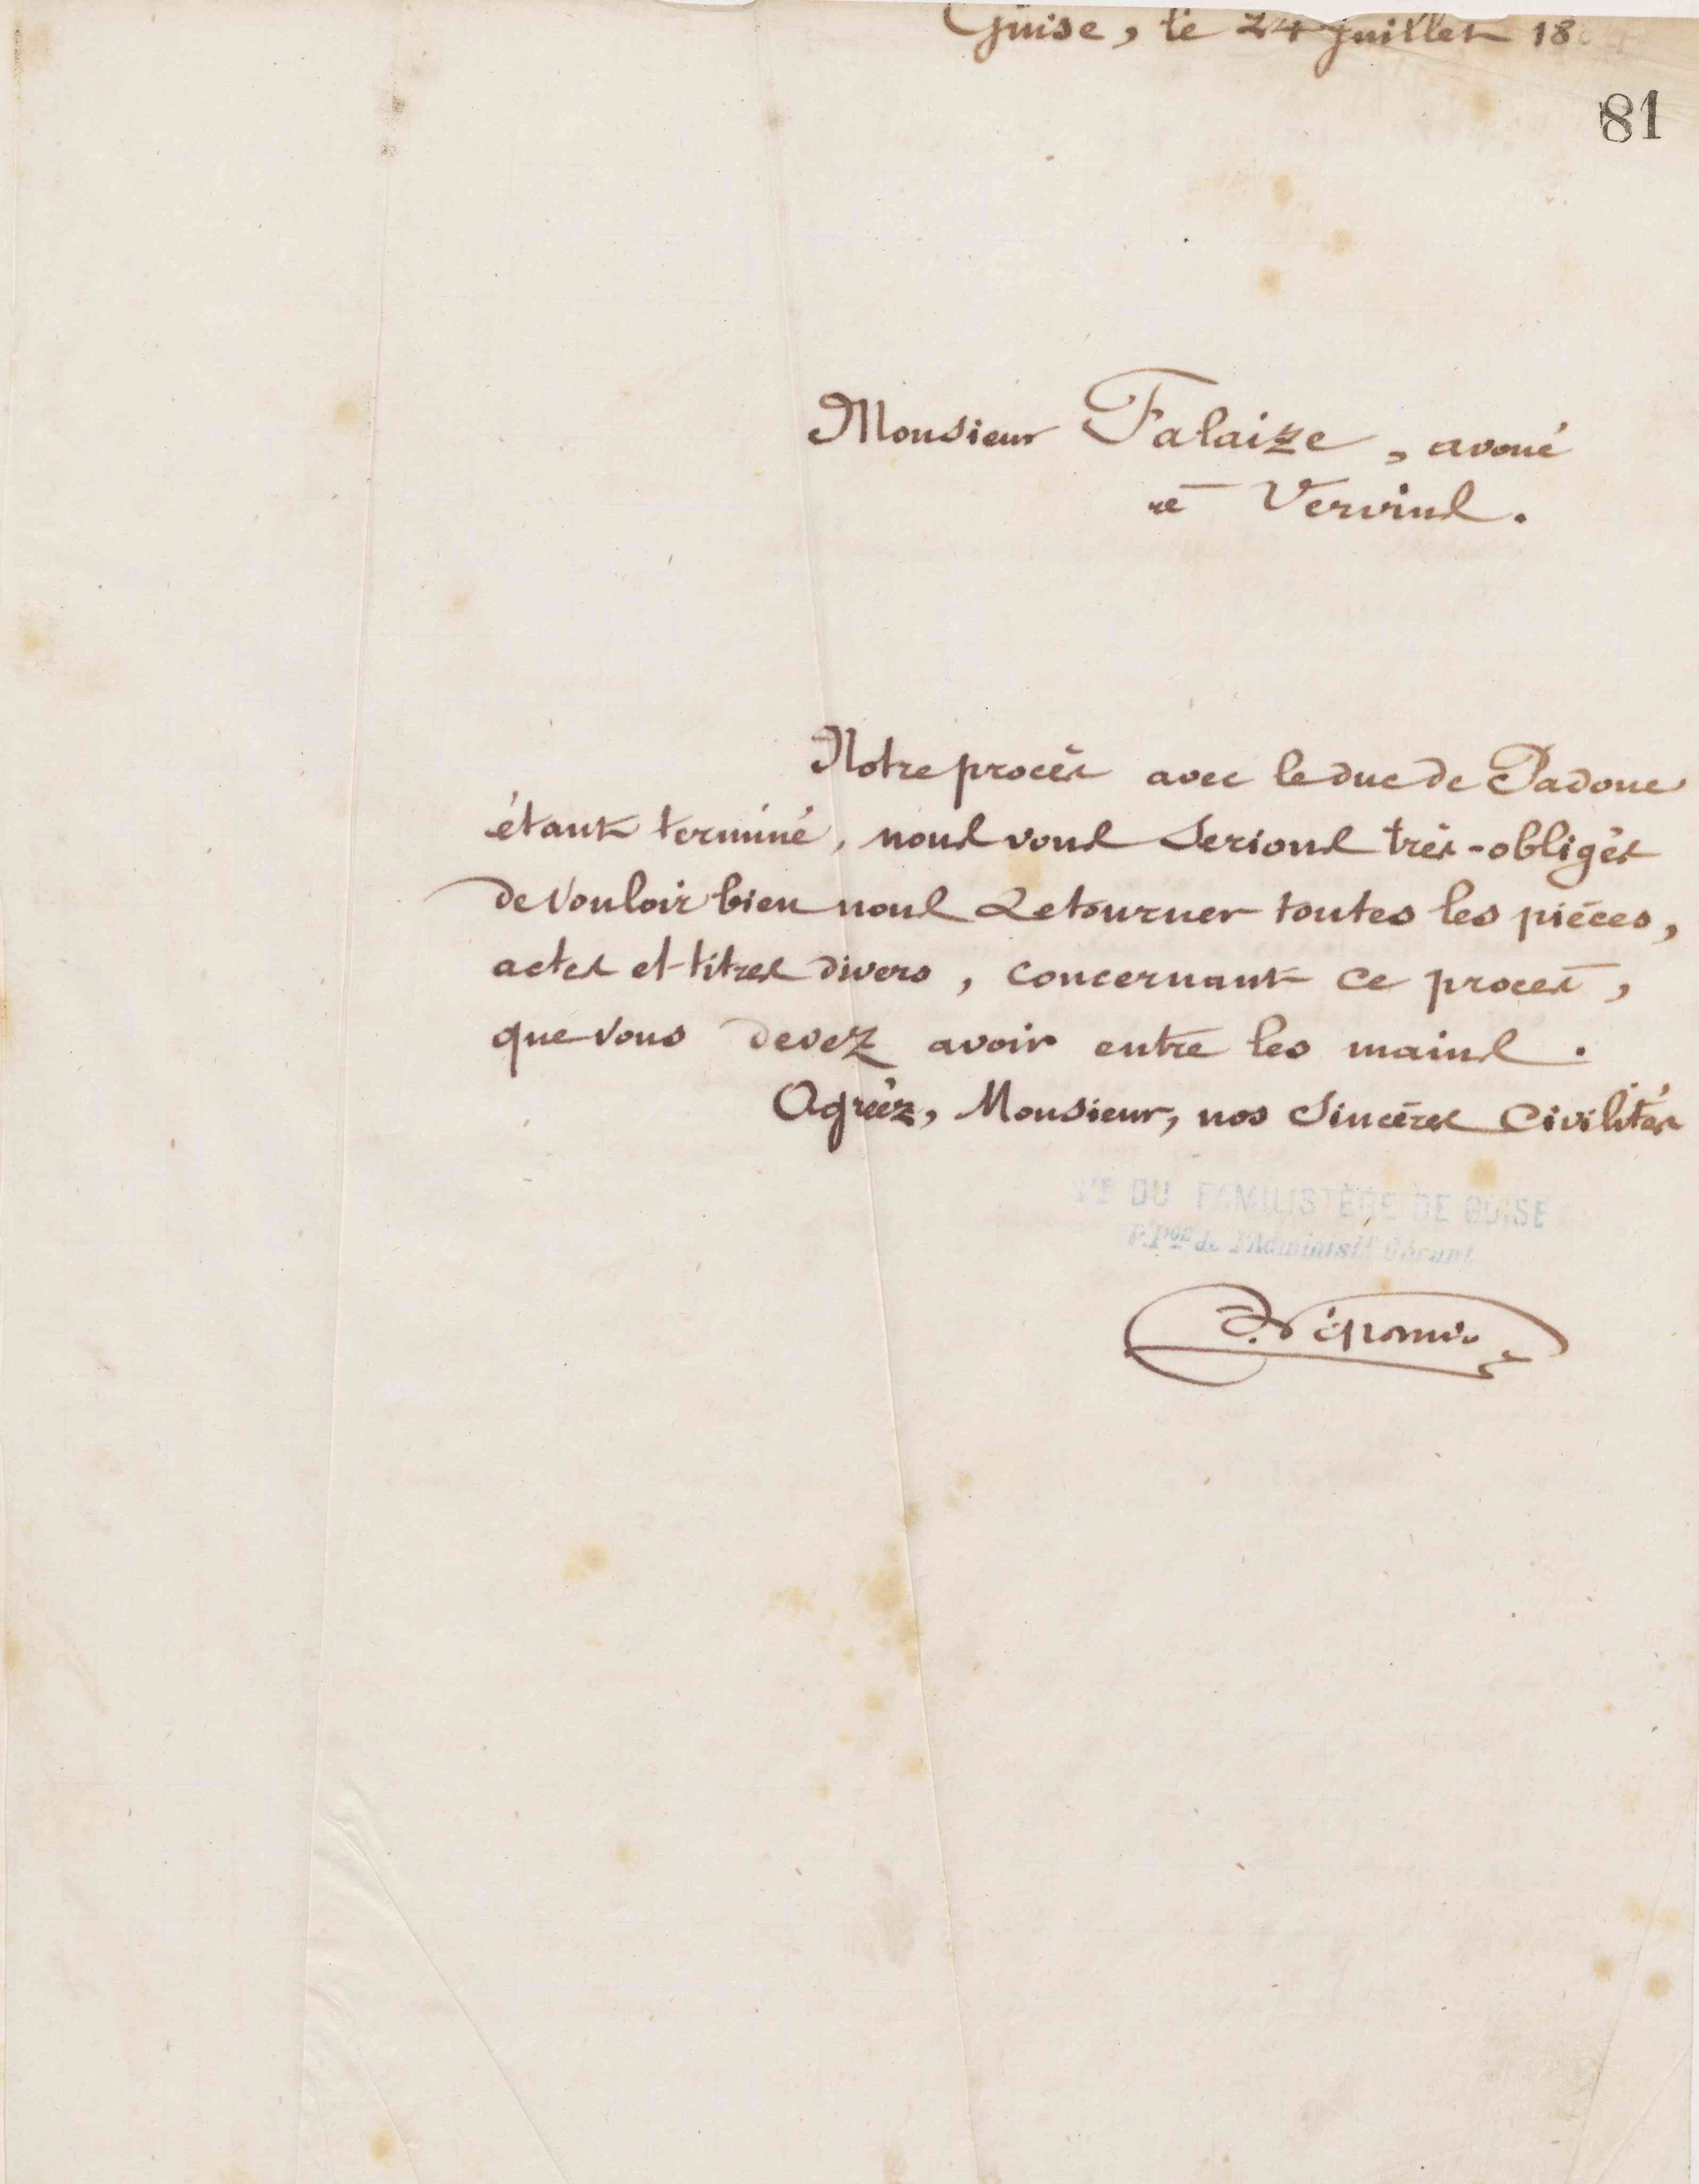 Guise, le 24 juillet 18
81
Monsieur Falaize, avoué
à Vervins.
Notre procès avec le duc de Padoue
étant terminé, nous vous serions très-obligés
de vouloir bien nous retourner toutes les pièces,
actes et titres divers, concernant ce procès,
que vous devez avoir entre les mains.
Agréez, Monsieur, nos sincères civilités
DU FAMILISTÈRE DE GUISE
P.Pon de l'Administr Gérant